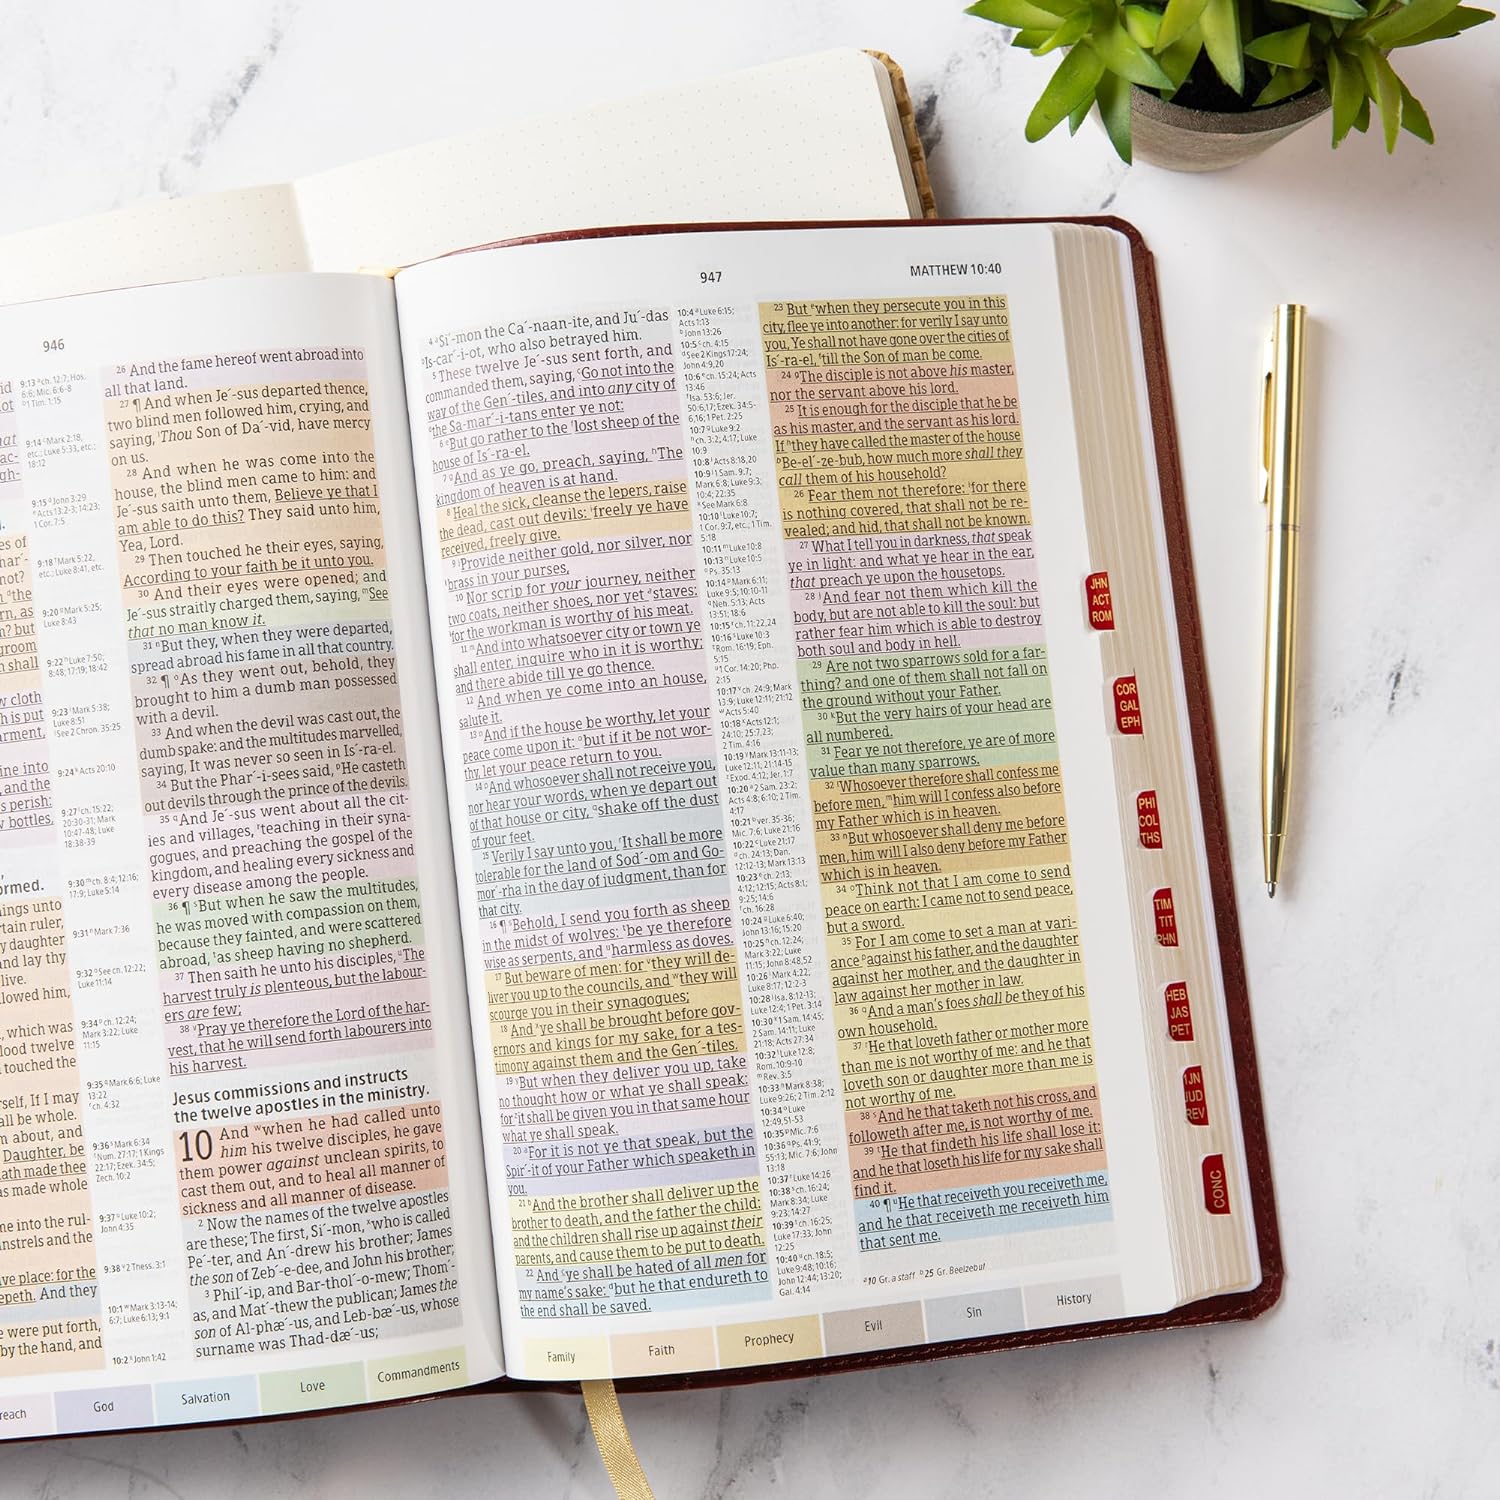 946
9:13 ᵖch. 12:7; Hos.
6:6; Mic. 6:6-8
ᵇ1 Tim. 1:15
9:14 ᶜMark 2:18,
etc.; Luke 5:33, etc.;
18:12
9:15 ᵈJohn 3:29
ᵉActs 13:2-3; 14:23;
1 Cor. 7:5
9:18 ᶠMark 5:22,
etc.; Luke 8:41, etc.
9:20 ᵍMark 5:25;
Luke 8:43
9:22 ʰLuke 7:50;
8:48; 17:19; 18:42
9:23 ⁱMark 5:38;
Luke 8:51
ʲSee 2 Chron. 35:25
9:24 ᵏActs 20:10
9:27 ˡch. 15:22;
20:30-31; Mark
10:47-48; Luke
18:38-39
9:30 ᵐch. 8:4; 12:16;
17:9; Luke 5:14
9:31 ⁿMark 7:36
9:32 ᵒSee ch. 12:22;
Luke 11:14
9:34 ᵖch. 12:24;
Mark 3:22; Luke
11:15
9:35 ᵠMark 6:6; Luke
13:22
ʳch. 4:32
9:36 ˢMark 6:34
ᵗNum. 27:17; 1 Kings
22:17; Ezek. 34:5;
Zech. 10:2
9:37 ᵘLuke 10:2;
John 4:35
9:38 ᵛ2 Thess. 3:1
10:1 ʷMark 3:13-14;
6:7; Luke 6:13; 9:1
10:2 ˣJohn 1:42
26 And the fame hereof went abroad into
all that land.
27 ¶ And when Je´-sus departed thence,
two blind men followed him, crying, and
saying, ˡThou Son of Da´-vid, have mercy
on us.
28 And when he was come into the
house, the blind men came to him: and
Je´-sus saith unto them, Believe ye that I
am able to do this? They said unto him,
Yea, Lord.
29 Then touched he their eyes, saying,
According to your faith be it unto you.
30 And their eyes were opened; and
Je´-sus straitly charged them, saying, ᵐSee
that no man know it.
31 ⁿBut they, when they were departed,
spread abroad his fame in all that country.
32 ¶ ᵒAs they went out, behold, they
brought to him a dumb man possessed
with a devil.
33 And when the devil was cast out, the
dumb spake: and the multitudes marvelled,
saying, It was never so seen in Is´-ra-el.
34 But the Phar´-i-sees said, ᵖHe casteth
out devils through the prince of the devils.
35 ᵠAnd Je´-sus went about all the cit-
ies and villages, ʳteaching in their syna-
gogues, and preaching the gospel of the
kingdom, and healing every sickness and
every disease among the people.
36 ¶ ˢBut when he saw the multitudes,
he was moved with compassion on them,
because they fainted, and were scattered
abroad, ᵗas sheep having no shepherd.
37 Then saith he unto his disciples, ᵘThe
harvest truly is plenteous, but the labour-
ers are few;
38 ᵛPray ye therefore the Lord of the har-
vest, that he will send forth labourers into
his harvest.
Jesus commissions and instructs
the twelve apostles in the ministry.
10 And ʷwhen he had called unto
him his twelve disciples, he gave
them power against unclean spirits, to
cast them out, and to heal all manner of
sickness and all manner of disease.
2 Now the names of the twelve apostles
are these; The first, Si´-mon, ˣwho is called
Pe´-ter, and An´-drew his brother; James
the son of Zeb´-e-dee, and John his brother;
3 Phil´-ip, and Bar-thol´-o-mew; Thom´-
as, and Mat´-thew the publican; James the
son of Al-phæ´-us, and Leb-bæ´-us, whose
surname was Thad-dæ´-us;
God
Salvation
Love
Commandments
947
MATTHEW 10:40
4 ᵃSi´-mon the Ca´-naan-ite, and Ju´-das
ᵇIs-car´-i-ot, who also betrayed him.
5 These twelve Je´-sus sent forth, and
commanded them, saying, ᶜGo not into the
way of the Gen´-tiles, and into any city of
ᵈthe Sa-mar´-i-tans enter ye not:
6 ᵉBut go rather to the ᶠlost sheep of the
house of Is´-ra-el.
7 ᵍAnd as ye go, preach, saying, ʰThe
kingdom of heaven is at hand.
8 Heal the sick, cleanse the lepers, raise
the dead, cast out devils: ⁱfreely ye have
received, freely give.
9 ʲProvide neither gold, nor silver, nor
ᵏbrass in your purses,
10 Nor scrip for your journey, neither
two coats, neither shoes, nor yet ᵃstaves:
ˡfor the workman is worthy of his meat.
11 ᵐAnd into whatsoever city or town ye
shall enter, inquire who in it is worthy;
and there abide till ye go thence.
12 And when ye come into an house,
salute it.
13 ⁿAnd if the house be worthy, let your
peace come upon it: ᵒbut if it be not wor-
thy, let your peace return to you.
14 ᵖAnd whosoever shall not receive you,
nor hear your words, when ye depart out
of that house or city, ᵠshake off the dust
of your feet.
15 Verily I say unto you, ʳIt shall be more
tolerable for the land of Sod´-om and Go-
mor´-rha in the day of judgment, than for
that city.
16 ¶ ˢBehold, I send you forth as sheep
in the midst of wolves: ᵗbe ye therefore
wise as serpents, and ᵘharmless as doves.
17 But beware of men: for ᵛthey will de-
liver you up to the councils, and ʷthey will
scourge you in their synagogues;
18 And ˣye shall be brought before gov-
ernors and kings for my sake, for a tes-
timony against them and the Gen´-tiles.
19 ʸBut when they deliver you up, take
no thought how or what ye shall speak:
for ᶻit shall be given you in that same hour
what ye shall speak.
20 ᵃFor it is not ye that speak, but the
Spir´-it of your Father which speaketh in
you.
21 ᵇAnd the brother shall deliver up the
brother to death, and the father the child:
and the children shall rise up against their
parents, and cause them to be put to death.
22 And ᶜye shall be hated of all men for
my name's sake: ᵈbut he that endureth to
the end shall be saved.
10:4 ᵃLuke 6:15;
Acts 1:13
ᵇJohn 13:26
10:5 ᶜch. 4:15
ᵈSee 2 Kings 17:24;
John 4:9,20
10:6 ᵉch. 15:24; Acts
13:46
ᶠIsa. 53:6; Jer.
50:6,17; Ezek. 34:5-
6,16; 1 Pet. 2:25
10:7 ᵍLuke 9:2
ʰch. 3:2; 4:17; Luke
10:9
10:8 ⁱActs 8:18,20
10:9 ʲ1 Sam. 9:7;
Mark 6:8; Luke 9:3;
10:4; 22:35
ᵏSee Mark 6:8
10:10 ˡLuke 10:7;
1 Cor. 9:7, etc.; 1 Tim.
5:18
10:11 ᵐLuke 10:8
10:13 ⁿLuke 10:5
ᵒPs. 35:13
10:14 ᵖMark 6:11;
Luke 9:5; 10:10-11
ᵠNeh. 5:13; Acts
13:51; 18:6
10:15 ʳch. 11:22,24
10:16 ˢLuke 10:3
ᵗRom. 16:19; Eph.
5:15
ᵘ1 Cor. 14:20; Php.
2:15
10:17 ᵛch. 24:9; Mark
13:9; Luke 12:11; 21:12
ʷActs 5:40
10:18 ˣActs 12:1;
24:10; 25:7,23;
2 Tim. 4:16
10:19 ʸMark 13:11-13;
Luke 12:11; 21:14-15
ᶻExod. 4:12; Jer. 1:7
10:20 ᵃ2 Sam. 23:2;
Acts 4:8; 6:10; 2 Tim.
4:17
10:21 ᵇver. 35-36;
Mic. 7:6; Luke 21:16
10:22 ᶜLuke 21:17
ᵈch. 24:13; Dan.
12:12-13; Mark 13:13
10:23 ᵉch. 2:13;
4:12; 12:15; Acts 8:1;
9:25; 14:6
ᶠch. 16:28
10:24 ᵍLuke 6:40;
John 13:16; 15:20
10:25 ʰch. 12:24;
Mark 3:22; Luke
11:15; John 8:48,52
10:26 ⁱMark 4:22;
Luke 8:17; 12:2-3
10:28 ʲIsa. 8:12-13;
Luke 12:4; 1 Pet. 3:14
10:30 ᵏ1 Sam. 14:45;
2 Sam. 14:11; Luke
21:18; Acts 27:34
10:32 ˡLuke 12:8;
Rom. 10:9-10
ᵐRev. 3:5
10:33 ⁿMark 8:38;
Luke 9:26; 2 Tim. 2:12
10:34 ᵒLuke
12:49,51-53
10:35 ᵖMic. 7:6
10:36 ᵠPs. 41:9;
55:13; Mic. 7:6; John
13:18
10:37 ʳLuke 14:26
10:38 ˢch. 16:24;
Mark 8:34; Luke
9:23; 14:27
10:39 ᵗch. 16:25;
Luke 17:33; John
12:25
10:40 ᵘch. 18:5;
Luke 9:48; 10:16;
John 12:44; 13:20;
Gal. 4:14
23 But ᵉwhen they persecute you in this
city, flee ye into another: for verily I say unto
you, Ye shall not have gone over the cities of
Is´-ra-el, ᶠtill the Son of man be come.
24 ᵍThe disciple is not above his master,
nor the servant above his lord.
25 It is enough for the disciple that he be
as his master, and the servant as his lord.
If ʰthey have called the master of the house
ᵇBe-el´-ze-bub, how much more shall they
call them of his household?
26 Fear them not therefore: ⁱfor there
is nothing covered, that shall not be re-
vealed; and hid, that shall not be known.
27 What I tell you in darkness, that speak
ye in light: and what ye hear in the ear,
that preach ye upon the housetops.
28 ʲAnd fear not them which kill the
body, but are not able to kill the soul: but
rather fear him which is able to destroy
both soul and body in hell.
29 Are not two sparrows sold for a far-
thing? and one of them shall not fall on
the ground without your Father.
30 ᵏBut the very hairs of your head are
all numbered.
31 Fear ye not therefore, ye are of more
value than many sparrows.
32 ˡWhosoever therefore shall confess me
before men, ᵐhim will I confess also before
my Father which is in heaven.
33 ⁿBut whosoever shall deny me before
men, him will I also deny before my Father
which is in heaven.
34 ᵒThink not that I am come to send
peace on earth: I came not to send peace,
but a sword.
35 For I am come to set a man at vari-
ance ᵖagainst his father, and the daughter
against her mother, and the daughter in
law against her mother in law.
36 ᵠAnd a man's foes shall be they of his
own household.
37 ʳHe that loveth father or mother more
than me is not worthy of me: and he that
loveth son or daughter more than me is
not worthy of me.
38 ˢAnd he that taketh not his cross, and
followeth after me, is not worthy of me.
39 ᵗHe that findeth his life shall lose it:
and he that loseth his life for my sake shall
find it.
40 ¶ ᵘHe that receiveth you receiveth me,
and he that receiveth me receiveth him
that sent me.
ᵃ10 Gr. a staff ᵇ25 Gr. Beelzebul
Family
Faith
Prophecy
Evil
Sin
History
JHN
ACT
ROM
COR
GAL
EPH
PHI
COL
THS
TIM
TIT
PHN
HEB
JAS
PET
1JN
JUD
REV
CONC